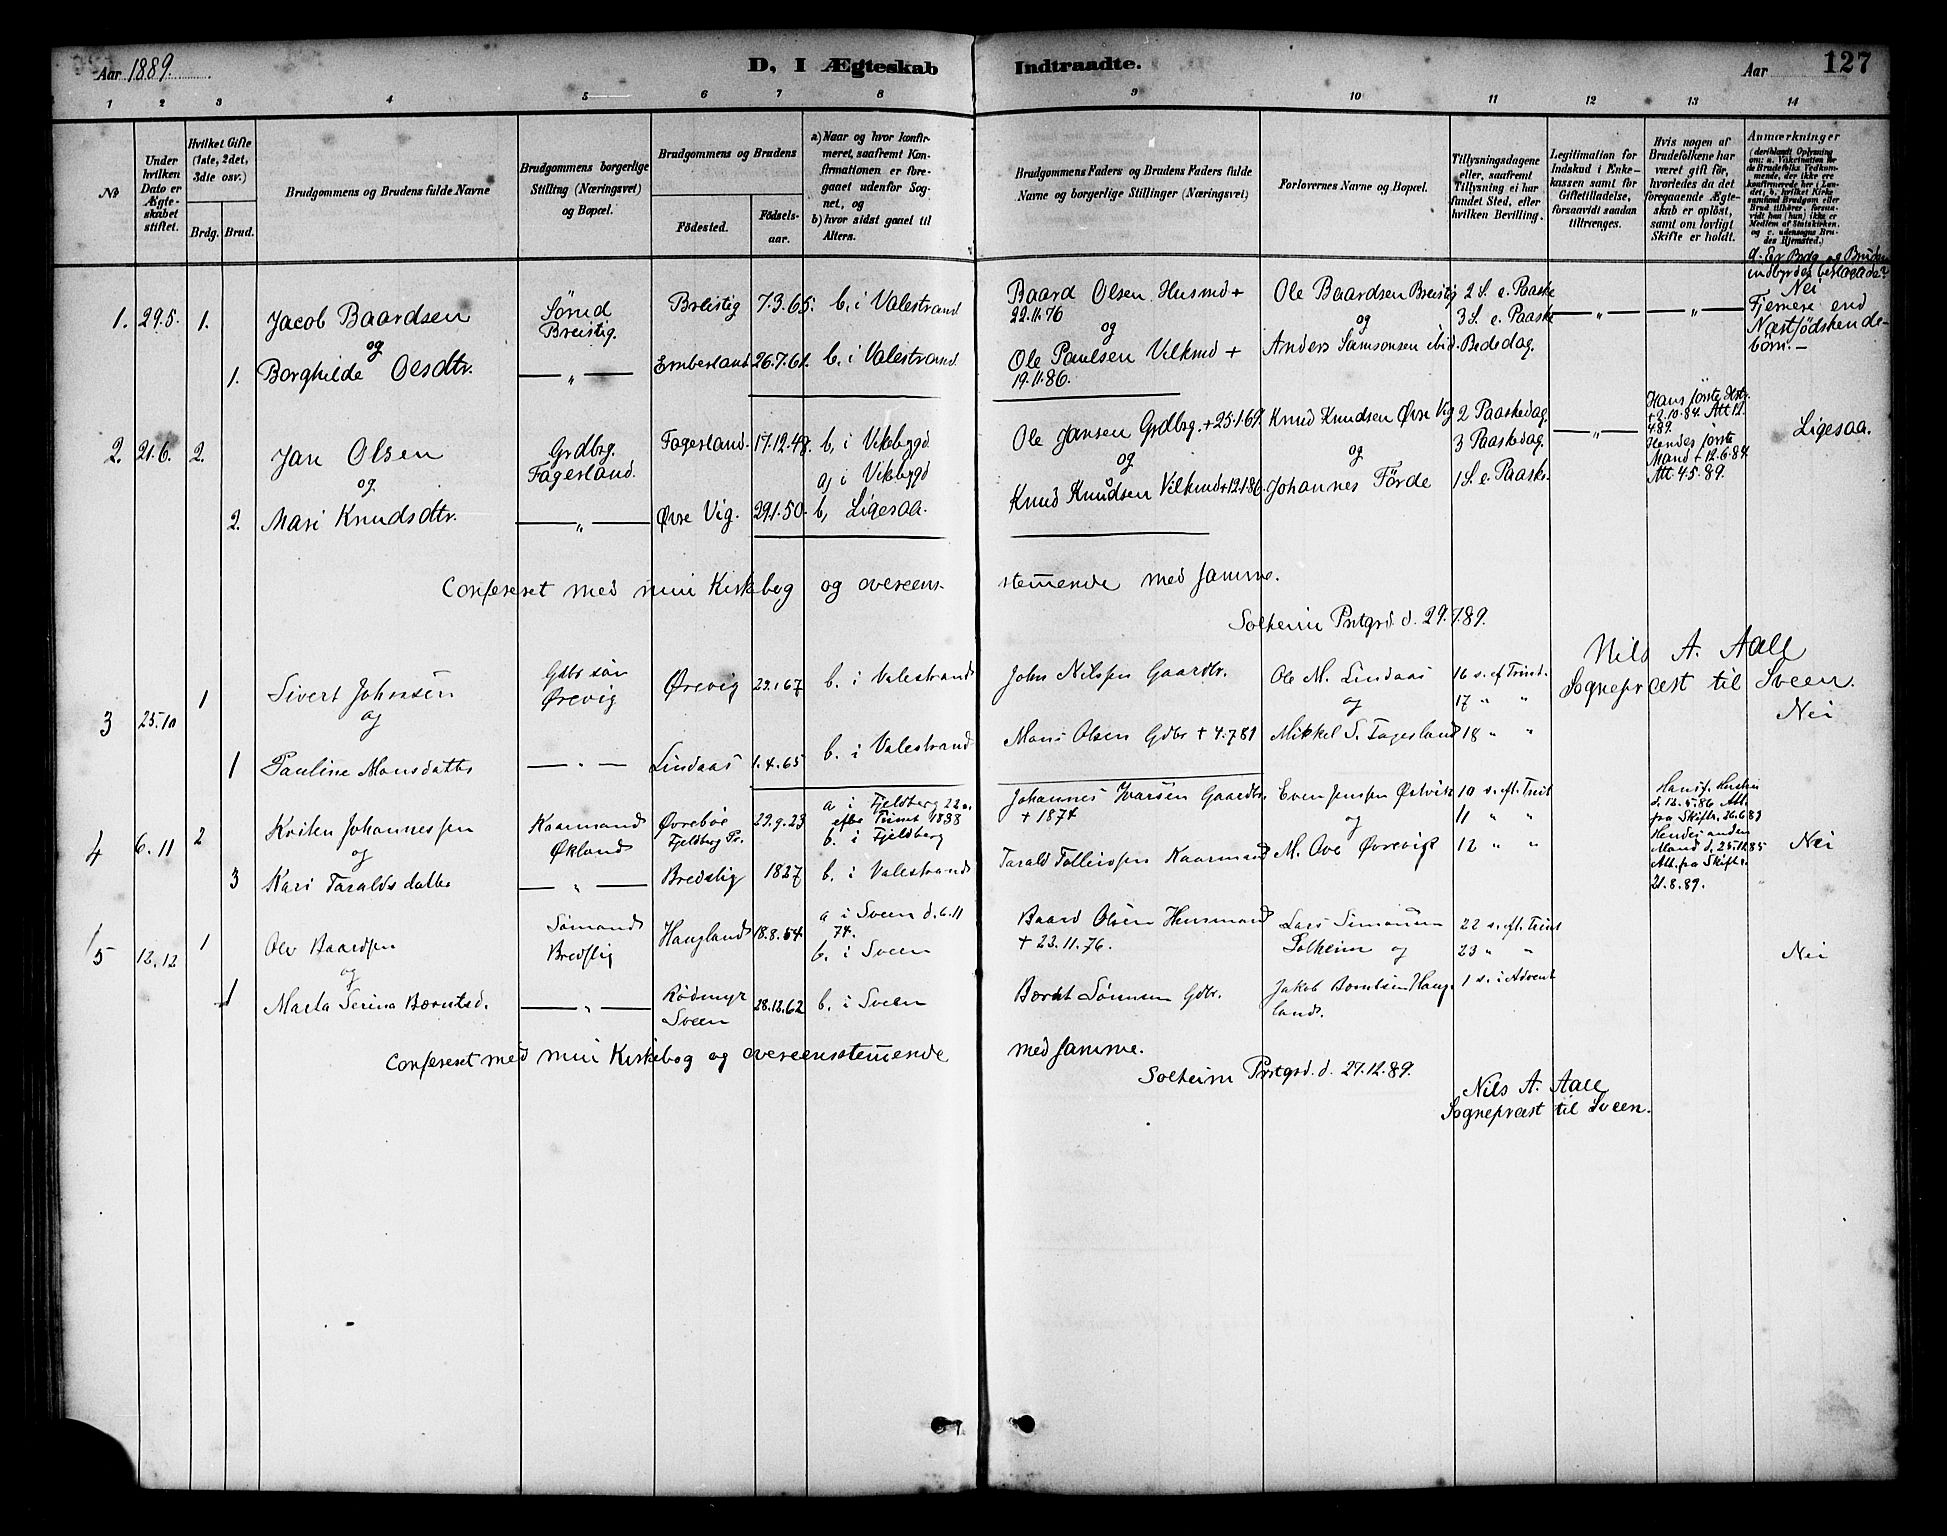 Aar 1889.
D, I Ægteskab Indtraadte.
Aar 127
1 2 3 4 5 6 7 8 9 10 11 12 13 14
No
Under hvilken Dato er Ægteskabet stiftet.
Hvilket Gifte (1ste, 2det, 3die osv.)
Brdg. Brud.
Brudgommens og Brudens fulde Navne
Brudgommens borgerlige Stilling (Næringsvei) og Bopæl.
Brudgommens og Brudens
Fødested.
Fødselsaar.
a) Naar og hvor konfirmeret, saafremt Konfirmationen er foregaaet udenfor Sognet, og
b) hvor sidst gaaet til Alters.
Brudgommens Faders og Brudens Faders fulde Navne og borgerlige Stillinger (Næringsvei)
Forlovernes Navne og Bopæl.
Tillysningsdagene eller, saafremt Tillysning ei har fundet Sted, efter hvilken Bevilling.
Legitimation for Indskud i Enkekassen samt for Giftetilladelse, forsaavidt saadan tiltrænges.
Hvis nogen af Brudefolkene har været gift før, hvorledes da det foregaaende Ægteskab er opløst, samt om lovligt Skifte er holdt.
Anmærkninger
(deriblandt Oplysning om: a. Vakcination for de Brudefolks Vedkommende, der ikke ere konfirmerede her i Landet, b. hvilket Kirkesamfund Brudgom eller Brud tilhører, forsaavidt han (hun) ikke er Medlem af Statskirken, og c. udensogns Brudes Hjemsted.)
d. Er Brdg og Bruden
indbyrdes beslægtede?
Nei
Fjernere end
Næstsødskende-
børn.-
1. 29.5. 1. Jacob Baardsen
og
1. Borghilde Olsdtr.
Sømd
Breistig.
— " —
Breistig 7.3.65. b. i Valestrand
Emberland 26.7.61. b. i Valestrand
Baard Olsen Husmd +
22.11.76
og
Ole Paulsen Vilkmd +
19.11.86.
Ole Baardsen Breistig
og
Anders Samsonsen ibid.
2 S. e. Paaske
3 S. e. Paaske
Bededag.
— " — — " —
2. 21.6. 2. Jan Olsen
og
2. Mari Knudsdtr.
Grdbrg.
Fagerland.
— " —
Fagerland. 17.12.48. b, i Vikebygd
a, i Vikebygd
Øvre Vig. 29.1.50. b, Ligesaa.
Ole Jansen Grdbrg. +25.1.69.
og
Knud Knudsen Vilkmd +12.1.86.
Knud Knudsen Øvre Vig
og
Johannes Førde
2 Paaskedag.
3 Paaskedag.
1 S. e. Paaske.
— " —
Hans første Hstr.
+2.10.84. Att 12.
4.89.
Hendes første
Mand +12.6.84.
Att. 4.5.89.
Ligesaa.
Confereret med min Kirkebog og overeens-
stemmende med samme.
Solheim Prstgrd. d. 29.7.89.
Nils A. Aall
Sognepræst til Sveen.
3 25.10 1 Sivert Johnsen
og
1 Pauline Monsdatter
Gdbr søn
Ørevig
— " —
Ørevig 29.1.67 b. i Valestrand
Lindaas 1.4.65 b. i Valestrand
John Nilssen Gaardbr.
Mons Olsen Gdbr + 4.7.81
Ole M. Lindaas
og
Mikkel S. Fagerland
16 s. ef Trint.
17 " "
18 " "
Nei
4 6.11 2 Johannessen
og
3 Kari Taraldsdatter
Kaarmand
Økland
— " —
Øvrebøe
Fjeldberg Pr.
29.9.23
a i Fjeldberg 22 s.
efter Trinit 1838
b. i Fjeldberg
Bredstig 1827 b. i Valestrand
Johannes Ivarsen Gaardbr.
+ 1874
Tarald Tolleivsen Kaarmand
Even Jenssen
og
M. Ove Øvrevig
10 s. eft. Trint
11 " "
12 " "
Hans f. Hustru
d. 12.5.86 Att.
fra Skifter. 26.6.89
Hendes anden
Mand d. 25.11.85
Att. fra Skifter.
21.8.89.
Nei
5 12.12 1 Ole Baardsen
og
1 Marta Serina Berntsd.
Sømand
Bredstig
— " —
Haugland 18.8.54
a i Sveen d. 6.11
74.
b. i Sveen
Rødmyr
Sveen
28.12.62 b. i Sveen
Baard Olsen Husmand
+ 22.11.76.
Bernt Sørensen Gdbr.
Lars Simonsen
Solheim og
Jakob Berntsen Haug-
land.
22 s. eft. Trint
23 " "
1 s. i Advent
Nei
Confereret med min Kirkebog og overeensstemmende
med samme.
Solheim Prstgrd. d. 27.12.89.
Nils A. Aall
Sognepræst til Sveen.